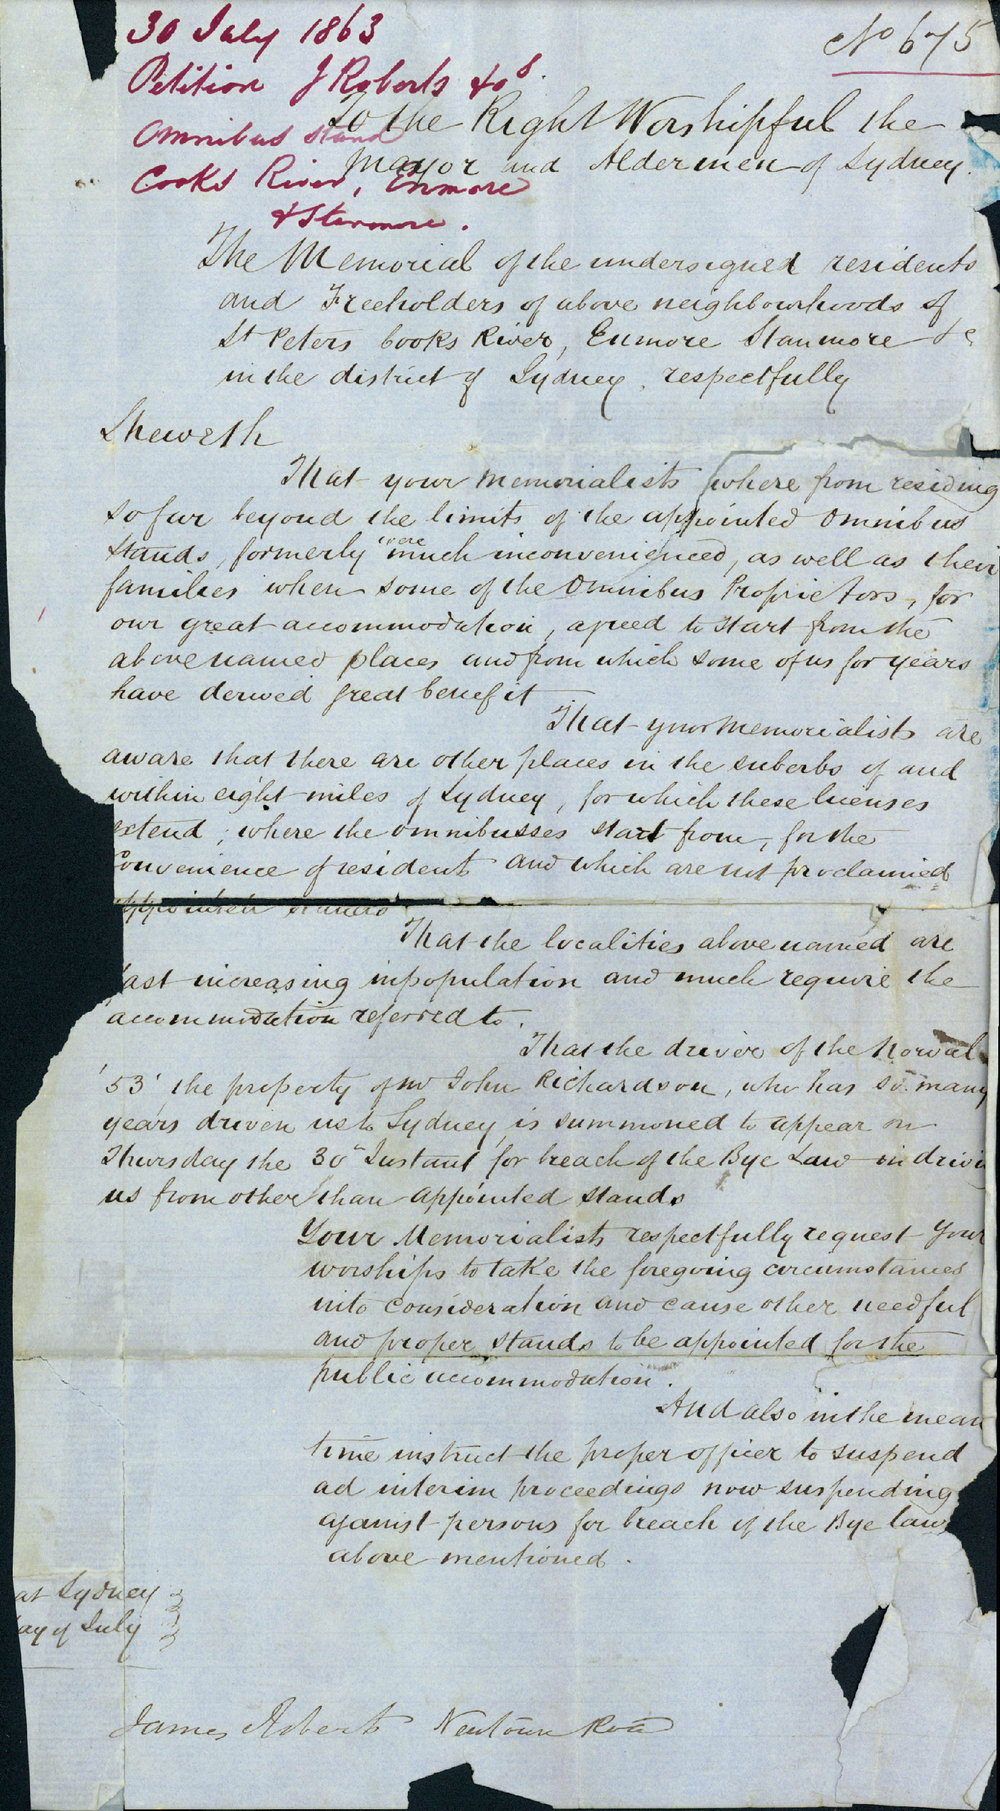 30 July 1863
No 675
Petition J Roberts & os.
Omnibus stand
Cooks River, Enmore
& Stanmore.
To the Right Worshipful the
Mayor and Aldermen of Sydney.
The Memorial of the undersigned residents
and Freeholders of above neighbourhoods of
St Peters Cooks River, Enmore Stanmore &c
in the district of Sydney. respectfully
Sheweth
That your memorialists where from residing
so far beyond the limits of the appointed omnibus
stands, formerly were much inconvenienced, as well as their
families when some of the Omnibus Proprietors, for
our great accommodation, agreed to start from the
above named places and from which some of us for years
have derived great benefit
That your memorialists are
aware that there are other places in the suberbs of and
within eight miles of Sydney, for which these licenses
extend, where the omnibusses start from, for the
convenience of resident and which are not proclaimed
appointed stands
That the localities above named are
fast increasing in population and much require the
accommodation referred to.
That the driver of the Norval
'53' the property of Mr John Richardson, who has so many
years driven us to Sydney, is summoned to appear on
Thursday the 30th Instant for breach of the Bye Law in drivin
us from other than appointed stands
Your Memorialists respectfully request your
worships to take the foregoing circumstances
into consideration and cause other needful
and proper stands to be appointed for the
public accommodation.
And also in the mean
time instruct the proper officer to suspend
ad interim proceedings now suspending
against persons for breach of the Bye laws
above mentioned.
at Sydney
ay of July
James Roberts Newtown Road